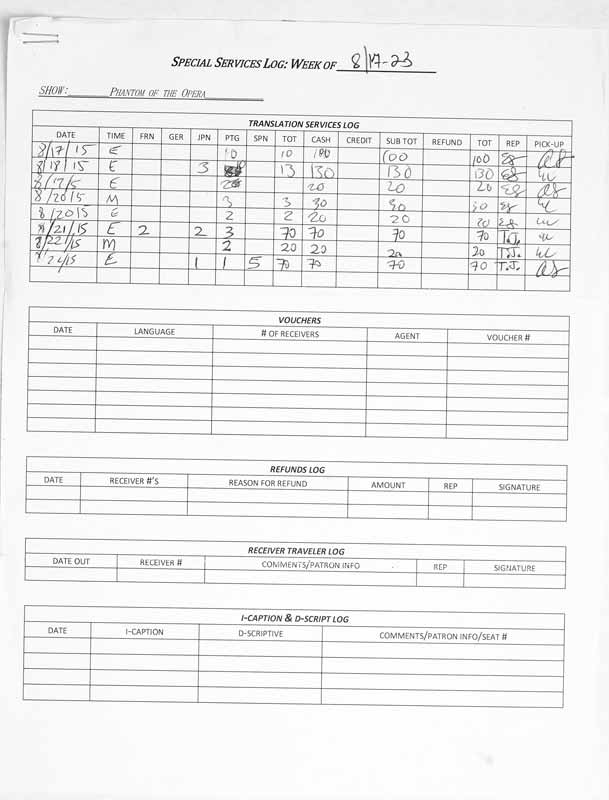 SPECIAL SERVICES LOG: WEEK OF 8/17-23
SHOW: PHANTOM OF THE OPERA
TRANSLATION SERVICES LOG
DATE TIME FRN GER JPN PTG SPN TOT CASH CREDIT SUB TOT REFUND TOT REP PICK-UP
8/17/15 E 10 10 100 100 100
8/18/15 E 3 13 130 130 130
E 20 20 20
8/20/15 M 3 3 30 30 30
8/20/15 E 2 2 20 20 20
8/21/15 E 2 2 3 70 70 70 70 T.J.
8/22/15 M 2 20 20 20 20 T.J.
E 1 1 5 70 70 70 70 T.J.
VOUCHERS
DATE LANGUAGE # OF RECEIVERS AGENT VOUCHER #
REFUNDS LOG
DATE RECEIVER #'S REASON FOR REFUND AMOUNT REP SIGNATURE
RECEIVER TRAVELER LOG
DATE OUT RECEIVER # COMMENTS/PATRON INFO REP SIGNATURE
I-CAPTION & D-SCRIPT LOG
DATE I-CAPTION D-SCRIPTIVE COMMENTS/PATRON INFO/SEAT #